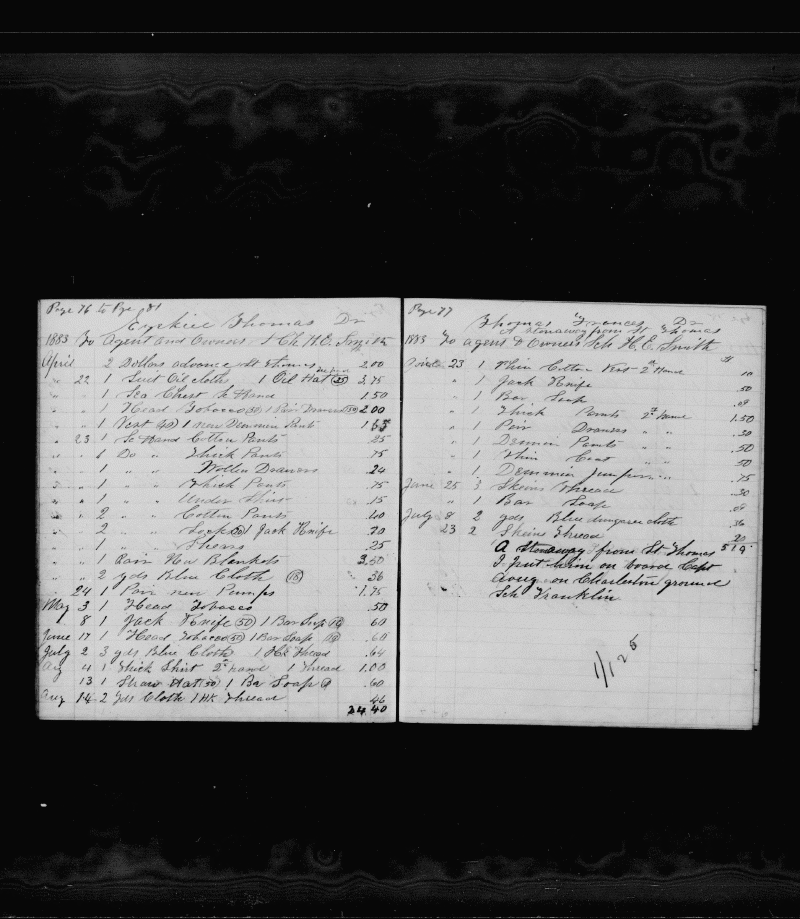 Page 76 to Pge 81
Ezekiel Thomas Dr
1883 To Agent and Owners Sch H.E. Smith
April 2 Dollars advance St Thomas 2.00
" 22 1 Suit Oil cloths 1 Oil Hat 3.75
" " 1 Sea Chest 2 Hand 1.50
" " 1 Head Tobacco (50) 1 Pair Drawers 2.00
" " 1 Vest 1 new Denmin Pants
" 23 1 Se Hand Cotton Pants .25
" " 1 Do " Thick Pants .75
" " 1 " " Wollen Drawers .24
" " 1 " " Thick Pants .75
" " 1 " " Under Shirt .15
" " 2 " " Cotton Pants
" 2 " " Soap 1 Jack Knife 70
" 1 " " .25
" " 1 Pair Blankets 3.50
" " 2 yds Blue Cloth (18) 36
" 24 1 Pair new Pumps 1.75
May 3 1 Head Tobacco .50
" 8 1 Jack Knife (50) 1 Bar Soap 60
June 17 1 Head Tobacco (50) 1 Bar Soap .60
July 2 3 yds Blue Cloth 1 Hk Thread .64
Aug 4 1 Thick Shirt 2d hand 1 Thread 1.00
13 1 Straw Hat (50) 1 Bar Soap .60
Aug 14 2 yds Cloth 1 HK Thread 46
24 40
Page 77
Thomas Frances Dr
A Stonaway from St Thomas
1883 To agent & Owners Sch H.E. Smith
23 1 Thin Cotton Vest 2d Hand
" 1 Jack Knife .50
" 1 Bar Soap .09
" 1 Thick Pants 2d Hand 1.50
" 1 Pair Drawers " " .30
" 1 Denmin Pants " " .50
" 1 Thin Coat " " .50
" 1 Denmin Jumper " " .75
June 25 3 Skeins Thread .30
" 1 Bar Soap .09
July 8 2 yds Blue dungaree cloth .36
23 2 Skeins Thread 20
A Stonaway from St Thomas 5 19
I put him on board Capt
Avey on Charleston ground
Sch Franklin
1/125